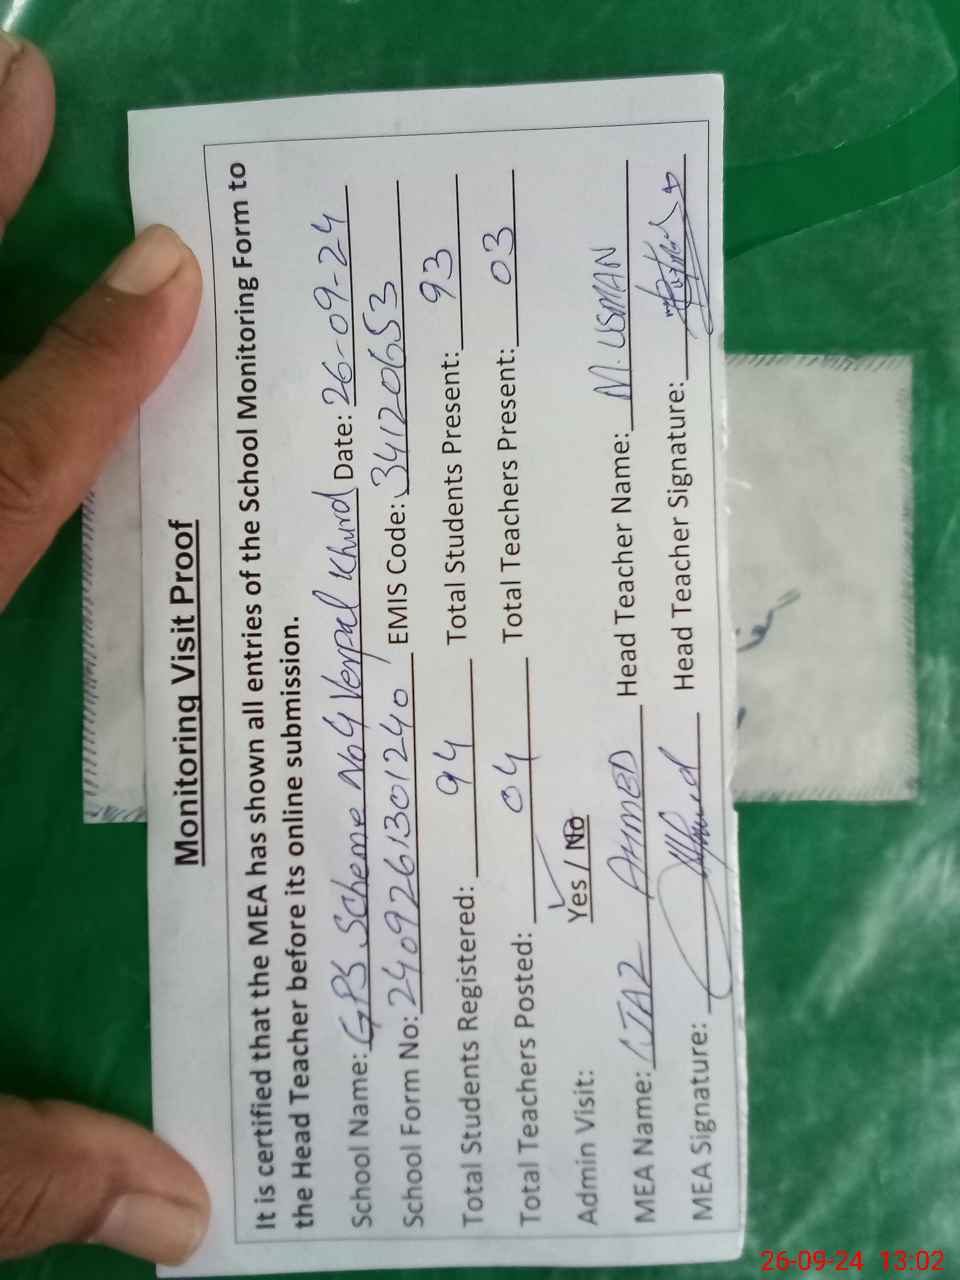 Monitoring Visit Proof
It is certified that the MEA has shown all entries of the School Monitoring Form to
the Head Teacher before its online submission.
School Name: GPS Scheme No 4 Verpal Khurd Date: 26-09-24
School Form No: 2409261301240 EMIS Code: 34120653
Total Students Registered: 94 Total Students Present: 93
Total Teachers Posted: 04 Total Teachers Present: 03
Admin Visit: Yes / No
MEA Name: IJAZ AHMED Head Teacher Name: M. USMAN
MEA Signature: Head Teacher Signature:
26-09-24 13:02